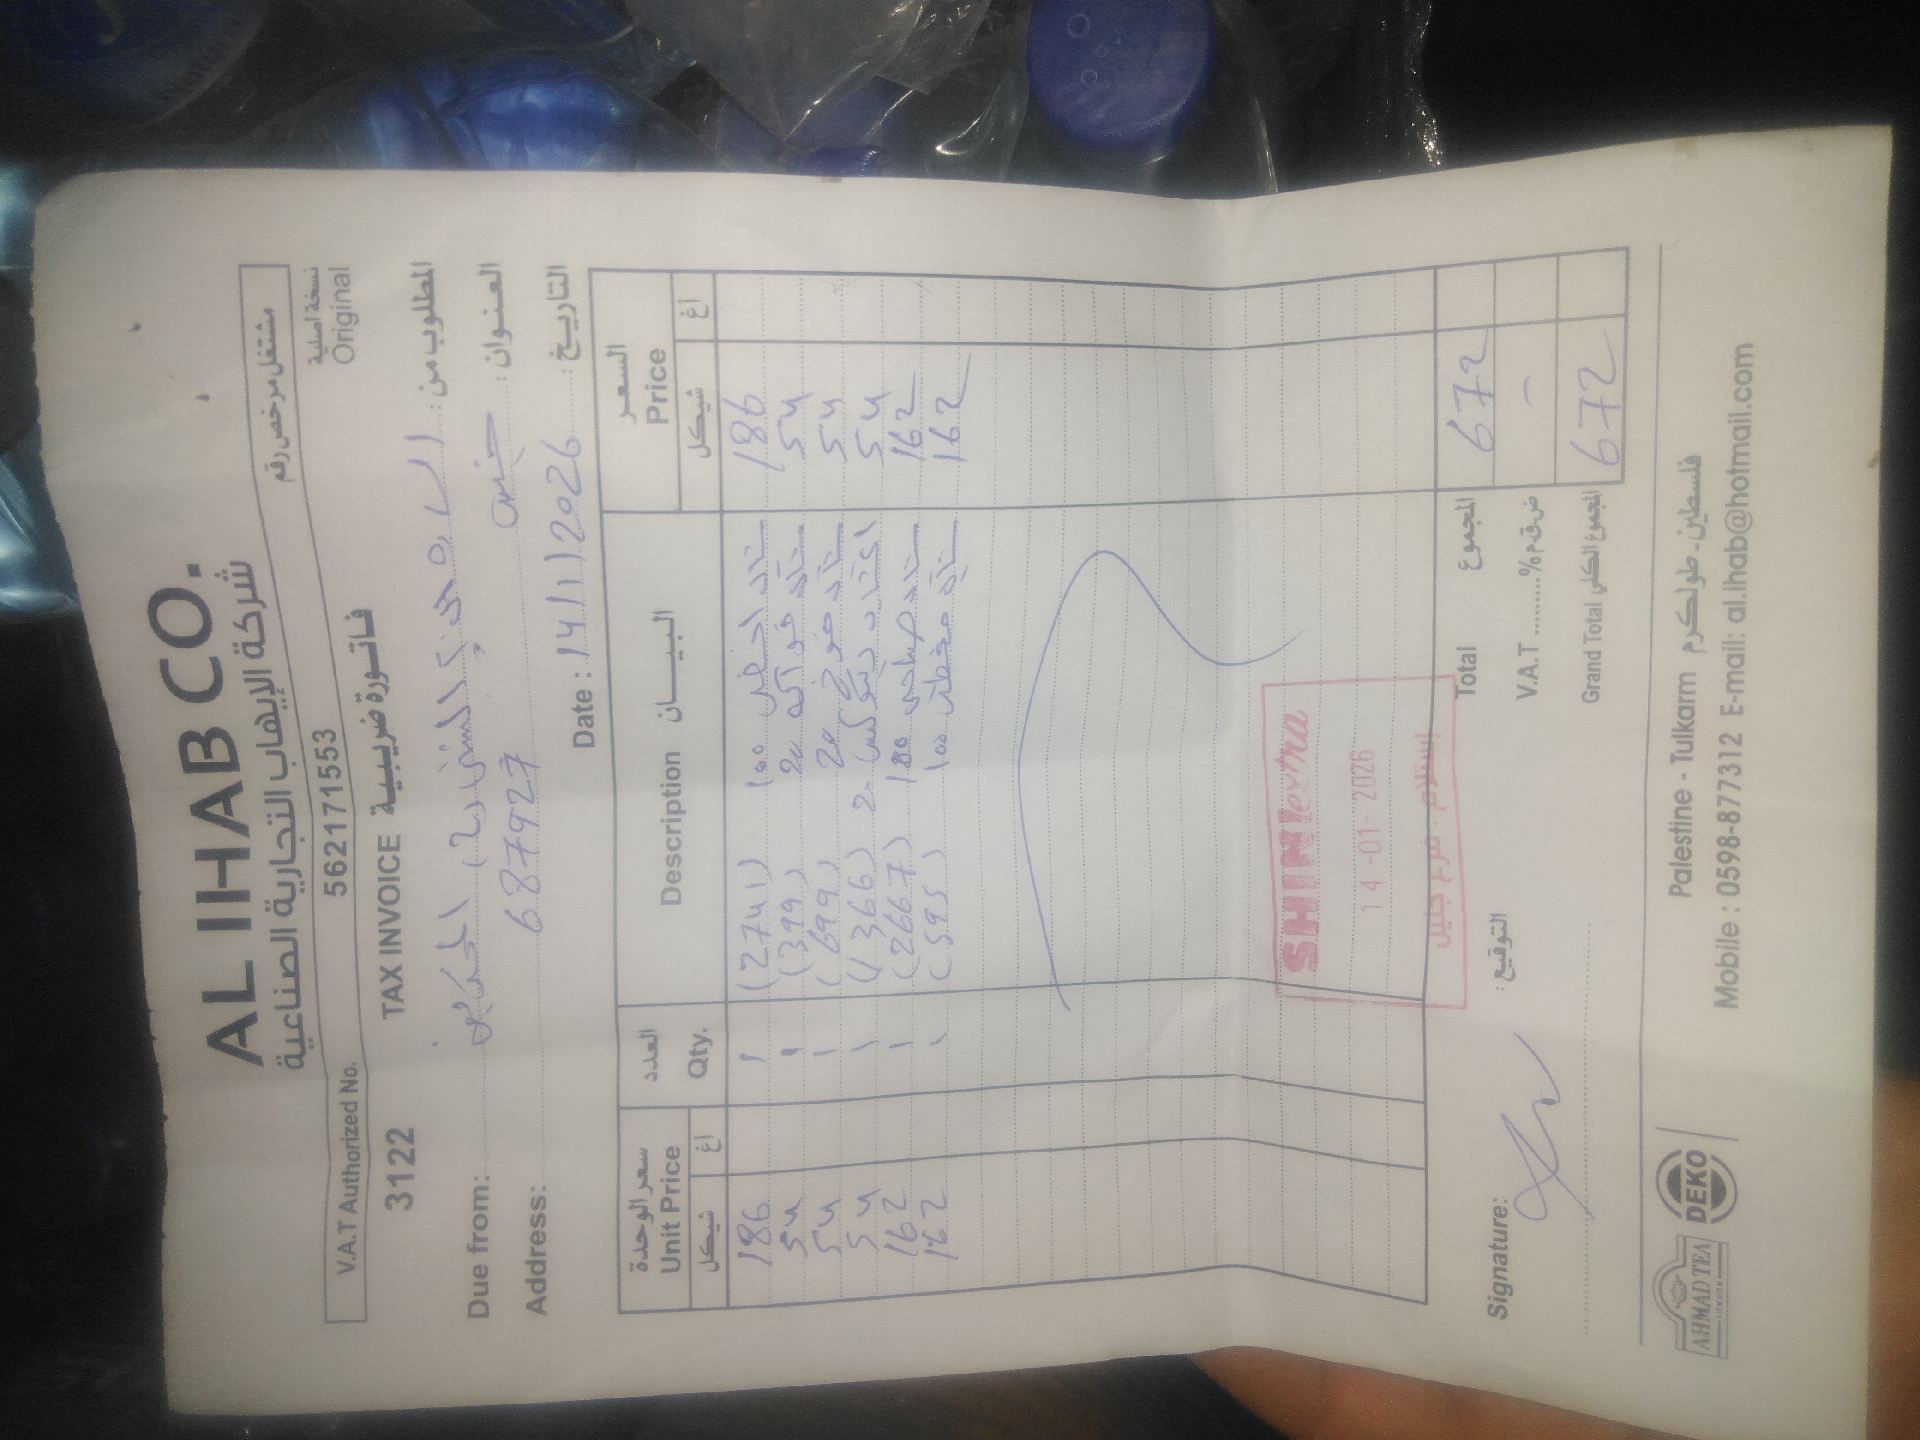 AL IHAB CO.
شركة الإيهاب التجارية الصناعية
V.A.T Authorized No. 562171553 مشتغل مرخص رقم
3122 TAX INVOICE فاتورة ضريبية نسخة اصلية
Original
Due from: المطلوب من:
Address: 6877927 جنين العنوان:
Date: 14/1/2026 التاريخ:
سعر الوحدة العدد Description البيــــان السعر
Unit Price Qty. Price
شيكل اغ شيكل اغ
186 1 (2741) 100 186
54 1 (399) 20 54
54 1 (699) 20 54
54 1 (1366) 54
162 1 (2667) 180 162
162 1 (595) 100 162
SHINI extra
14-01-2026
إستلام فرع جنين
Total المجموع 672
V.A.T ........% ض.ق.م -
Grand Total المجموع الكلي 672
Signature: التوقيع:
AHMAD TEA
LONDON
DEKO
Palestine - Tulkarm فلسطين - طولكرم
Mobile : 0598-877312 E-mail: al.ihab@hotmail.com